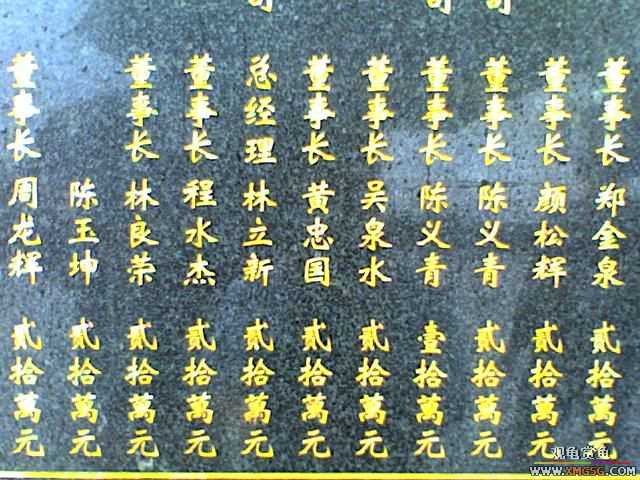 董事长 郑金泉 贰拾萬元
董事长 颜松辉 贰拾萬元
董事长 陈义青 贰拾萬元
董事长 陈义青 壹拾萬元
董事长 吴泉水 贰拾萬元
董事长 黄忠国 贰拾萬元
总经理 林立新 贰拾萬元
董事长 程水杰 贰拾萬元
董事长 林良荣 贰拾萬元
陈玉坤 贰拾萬元
董事长 周龙辉 贰拾萬元
观龟赏龟
WWW.XMGSG.COM